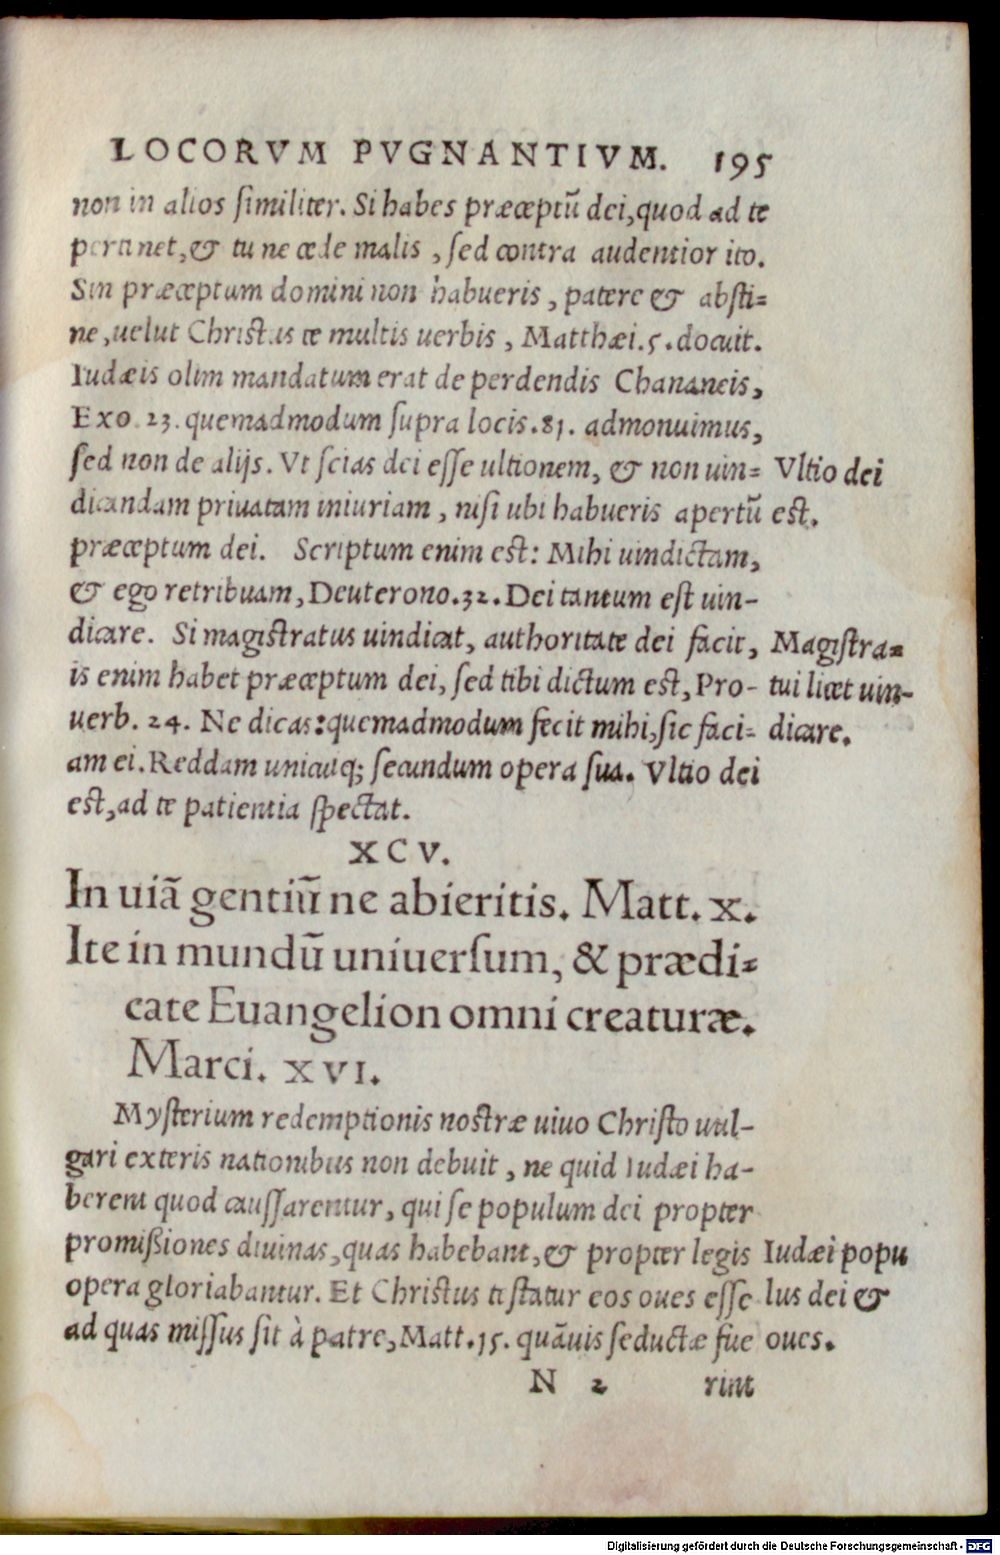 LOCORVM PVGNANTIVM. 195
non in alios similiter. Si habes præceptũ dei, quod ad te
pertinet, & tu ne cede malis, sed contra audentior ito.
Sin præceptum domini non habueris, patere & absti=
ne, uelut Christus te multis uerbis, Matthæi.5. docuit.
Iudæis olim mandatum erat de perdendis Chananeis,
Exo. 23. quemadmodum supra locis.81. admonuimus,
sed non de alijs. Vt scias dei esse ultionem, & non uin=
dicandam priuatam iniuriam, nisi ubi habueris apertũ
præceptum dei. Scriptum enim est: Mihi uindictam,
& ego retribuam, Deuterono.32. Dei tantum est uin-
dicare. Si magistratus uindicat, authoritate dei facit,
is enim habet præceptum dei, sed tibi dictum est, Pro-
uerb. 24. Ne dicas: quemadmodum fecit mihi, sic faci=
am ei. Reddam unicuiq; secundum opera sua. Vltio dei
est, ad te patientia spectat.
Vltio dei
est.
Magistra=
tui licet uin-
dicare.
XCV.
In uiã gentiũ ne abieritis. Matt. x.
Ite in mundũ uniuersum, & prædi=
cate Euangelion omni creaturæ.
Marci. XVI.
Mysterium redemptionis nostræ uiuo Christo uul-
gari exteris nationibus non debuit, ne quid Iudæi ha-
berent quod caussarentur, qui se populum dei propter
promißiones diuinas, quas habebant, & propter legis
opera gloriabantur. Et Christus testatur eos oues esse
ad quas missus sit à patre, Matt.15. quãuis seductæ fue
Iudæi popu
lus dei &
oues.
N 2 rint
Digitalisierung gefördert durch die Deutsche Forschungsgemeinschaft - DFG